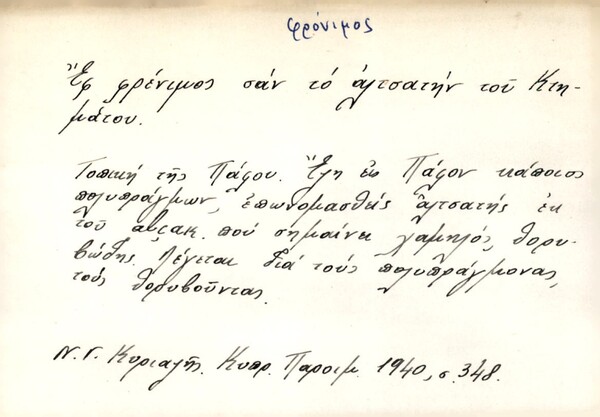 φρόνιμος
Ἔφ φρένιμος σάν τό ἀλτσατήν τοῦ Κτη-
μάτου.
Τοπική τῆς Πάφου. Ἔζη ἐν Πάφον κάποιος
πολυπράγμων, ἐπωνομασθείς ἀλτσατής ἐκ
τοῦ που σημαίνει χαμηλός, θορυ-
βώδης. Λέγεται διά τούς πολυπράγμονας,
τούς θορυβοῦντας.
Ν. Γ. Κυριαζῆς. Κυπρ. Παροιμ. 1940, σ. 348.